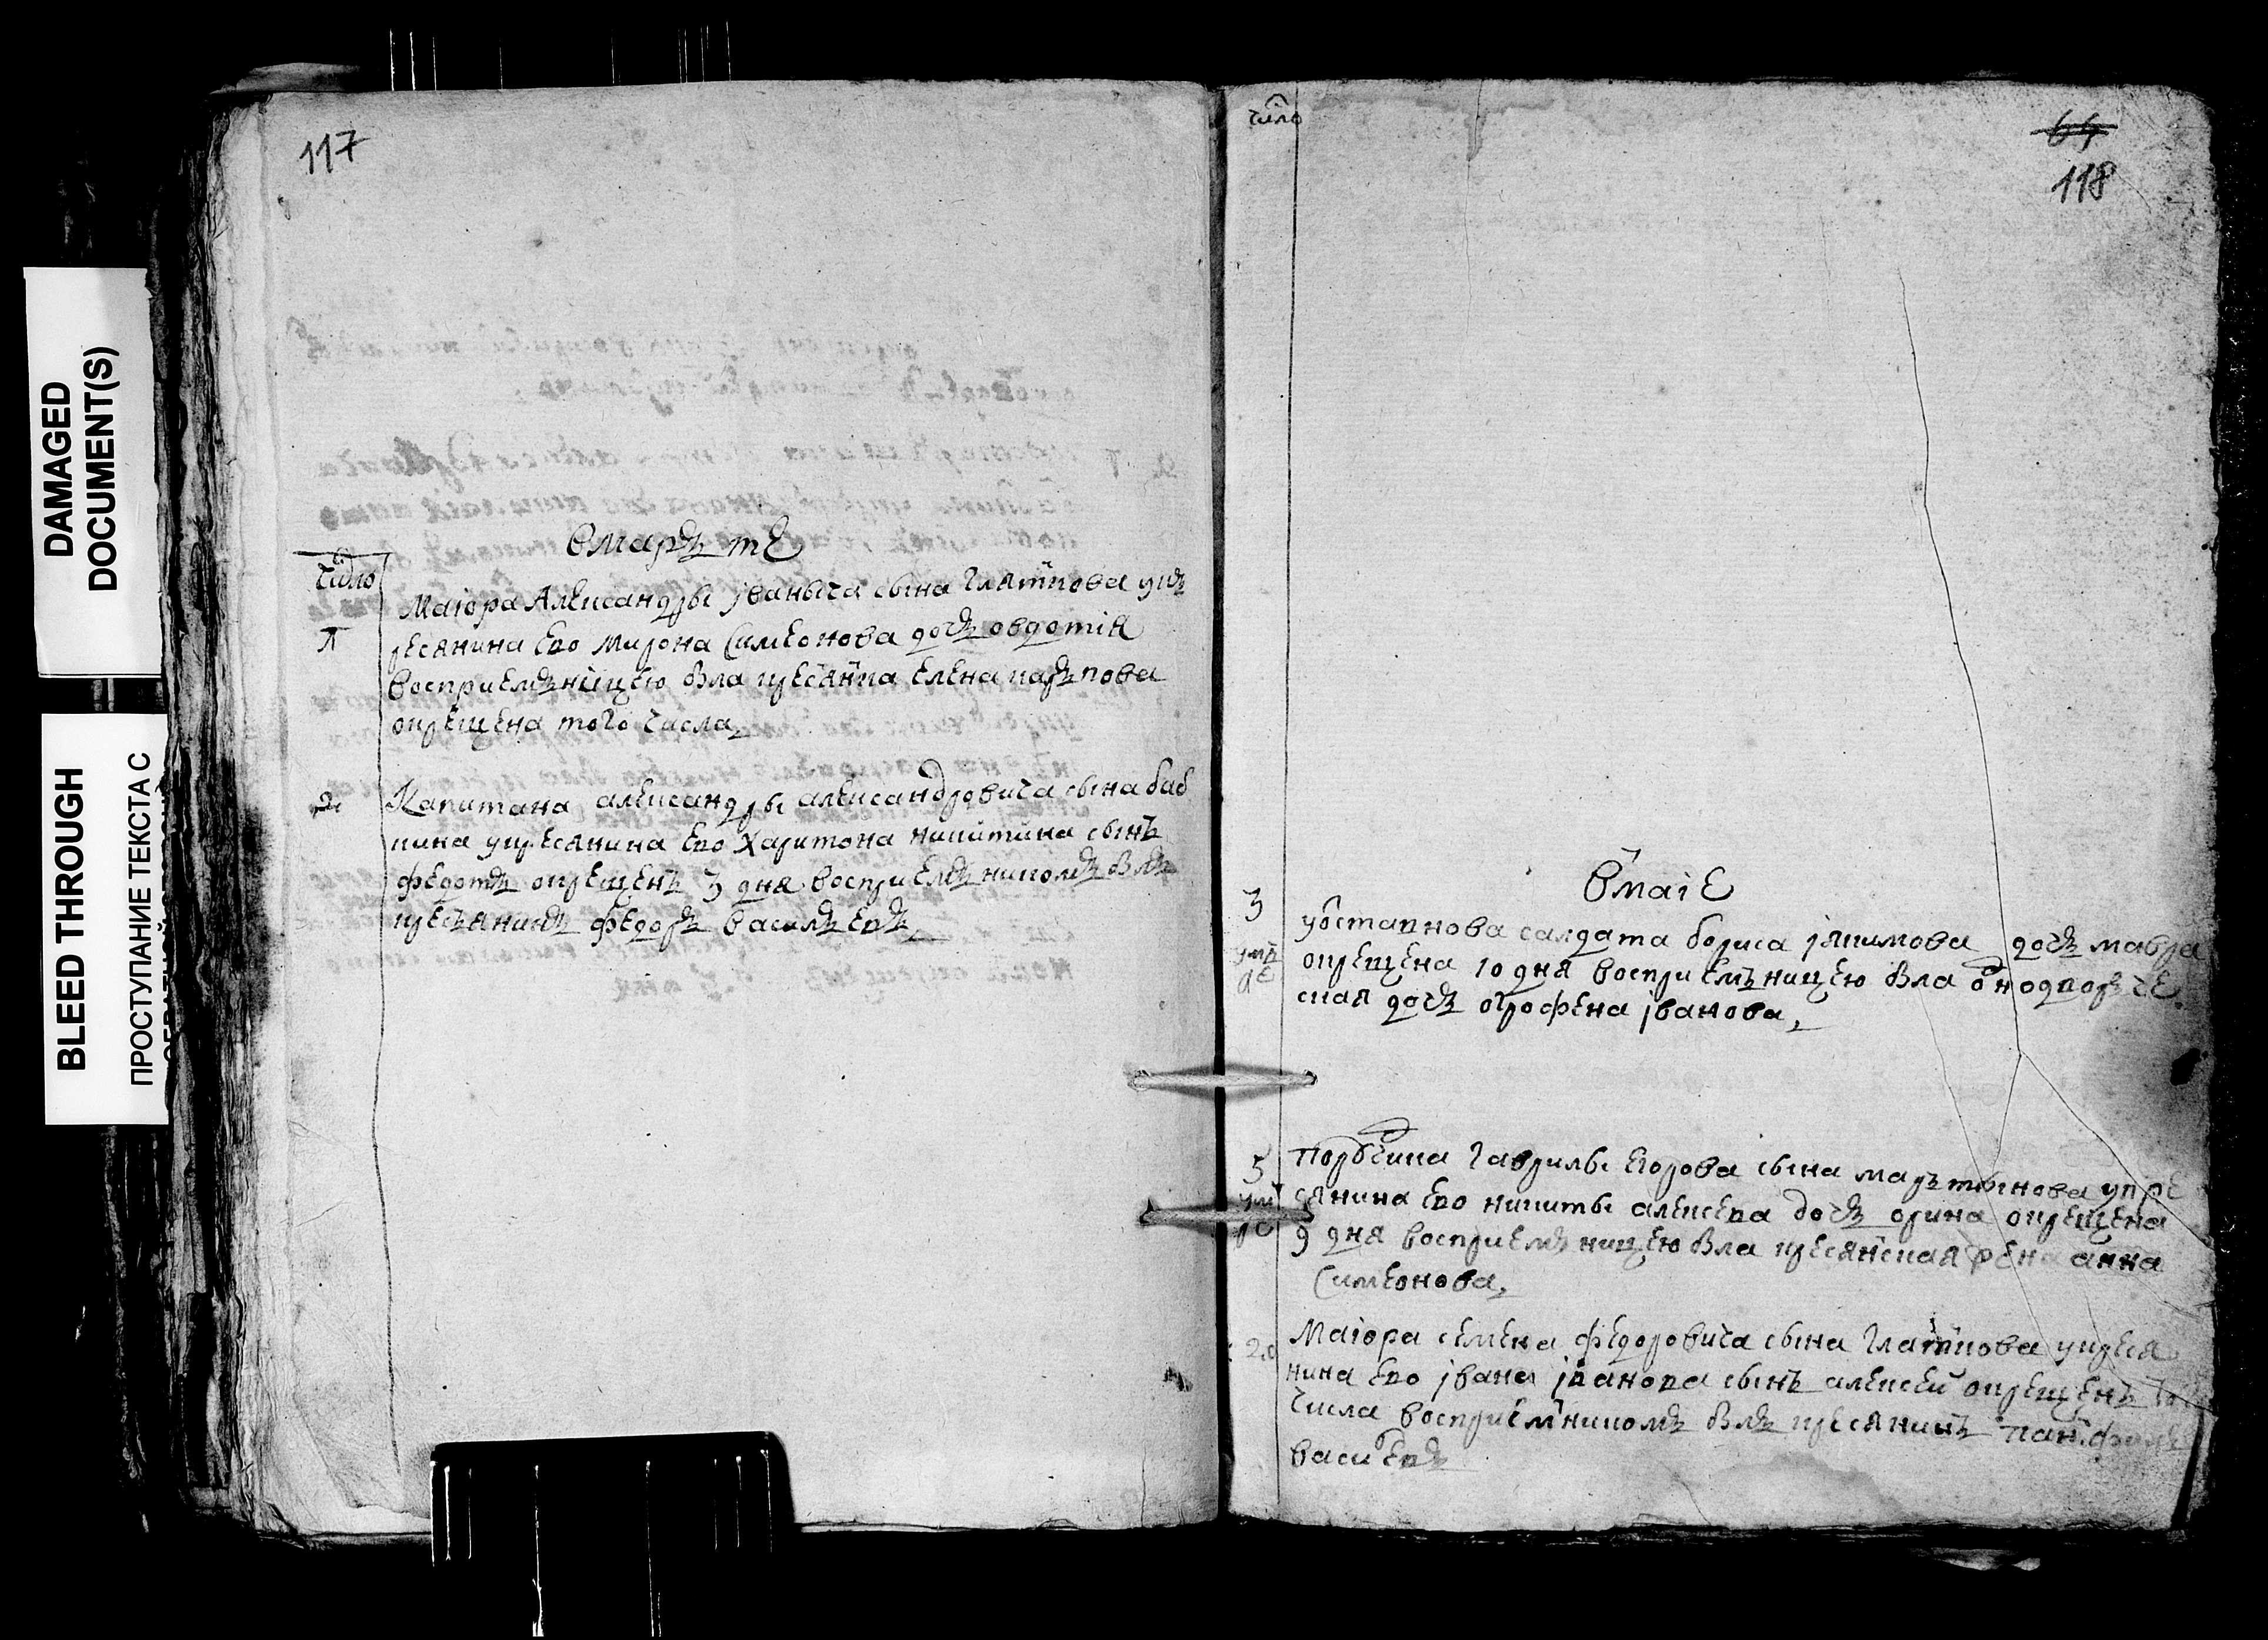 DAMAGED
DOCUMENT(S)
BLEED THROUGH
ПРОСТУПАНИЕ ТЕКСТА С
117
вмарътЕ
число
Маіора Александры јваныча сына глаткова укъ
ресянина ево мирона симеонова дочъ овдотія
восприемъницею была кресянка елена каръпова
окрещена того числа
2
Капитана александры александровича сына баб
кина укресянина ево харитона никитина сынъ
федотъ окрещенъ 3 дня восприемъникомъ былъ
кресъянинъ федоръ василъевъ
число
64
118
вмаіЕ
3
уостапнова салдата бориса јакимова дочъ мавра
окрещена 10 дня восприемъницею была однодворъче
ская дочъ огрофена јванова
5
порутчика гаврилы егорова сына марътынова укре
сянина ево никиты алексева дочъ орина окрещена
9 дня восприемъницею была кресянская жена анна
симеонова
20
Маіора семена федоровича сына глаткова укреся
нина ево јвана јванова сынъ алексей окрещенъ
числа восприемникомъ былъ кресянинъ панфилъ
василевъ